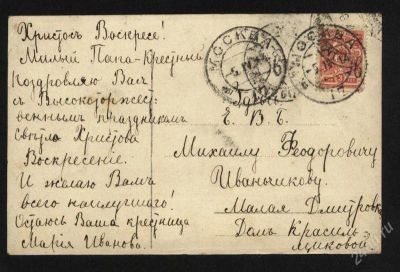 Христосъ Воскресе!
Милый Папа-Крестный
Поздравляю Васъ
съ Высокоторжест-
веннымъ праздникомъ
Светло Христова
Воскресение.
И желаю Вамъ
всего наилучшаго!
Остаюсь Ваша крестница
Марія Иванова.
МОСКВА
МОСКВА
Е. В. Б.
Михаилу Феодоровичу
Иванчикову.
Малая Дмитровк
Домъ Красиль-
щиковой